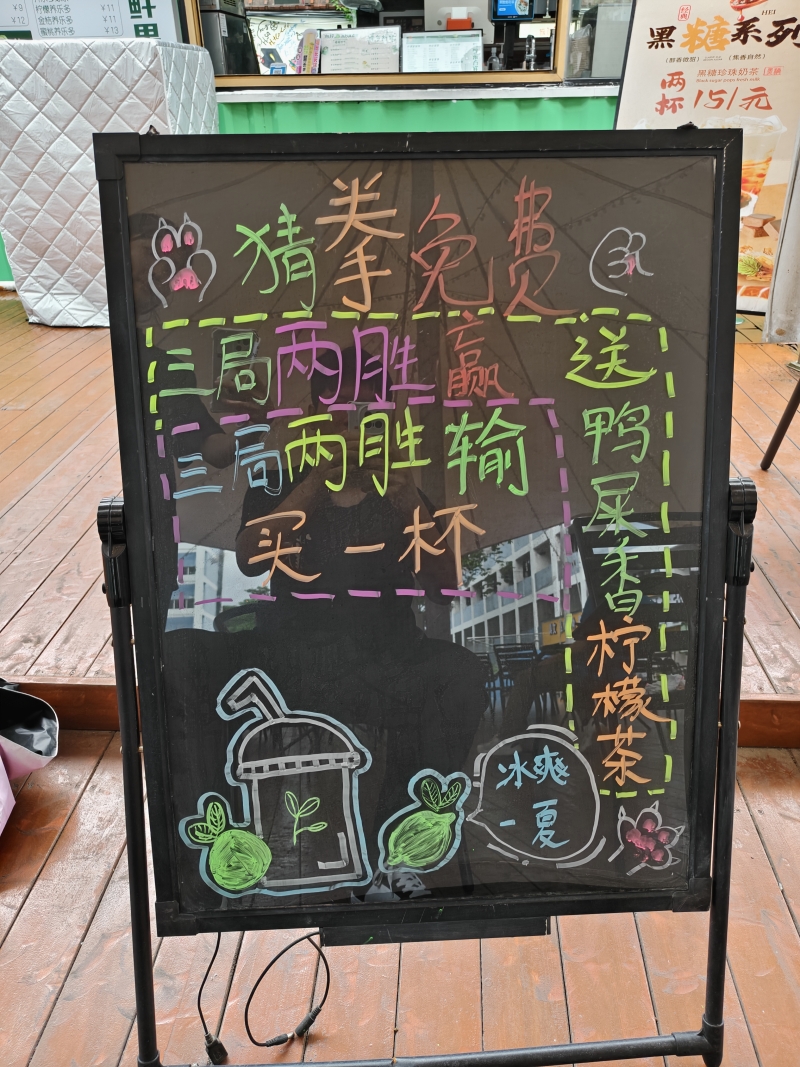 猜拳免费
三局两胜赢
送鸭屎香柠檬茶
三局两胜输
买一杯
冰爽
一夏
经典
黑糖系列
黑糖珍珠奶茶
两杯 15/元
¥9
¥12
柠檬养乐多 ¥11
金桔养乐多 ¥11
蜜桃养乐多 ¥13